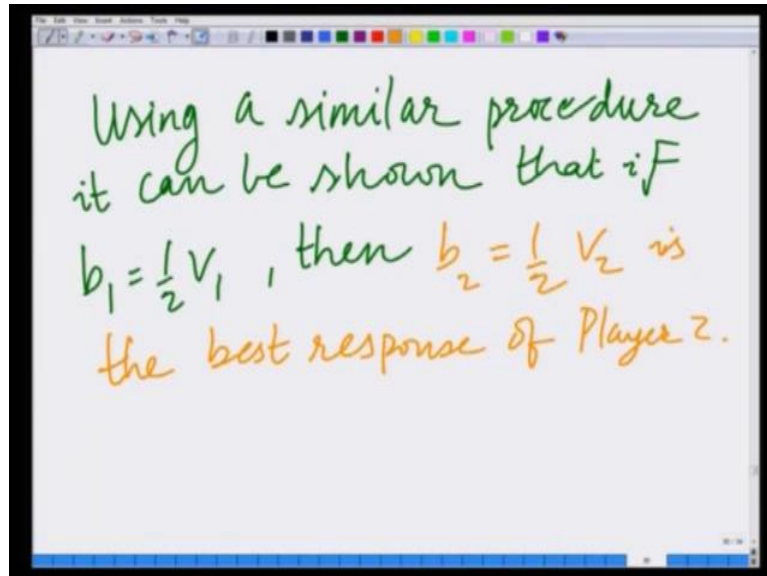 File Edit View Insert Actions Tools Help
Using a similar procedure
it can be shown that if
b₁ = 1/2 V₁ , then b₂ = 1/2 V₂ is
the best response of Player 2.